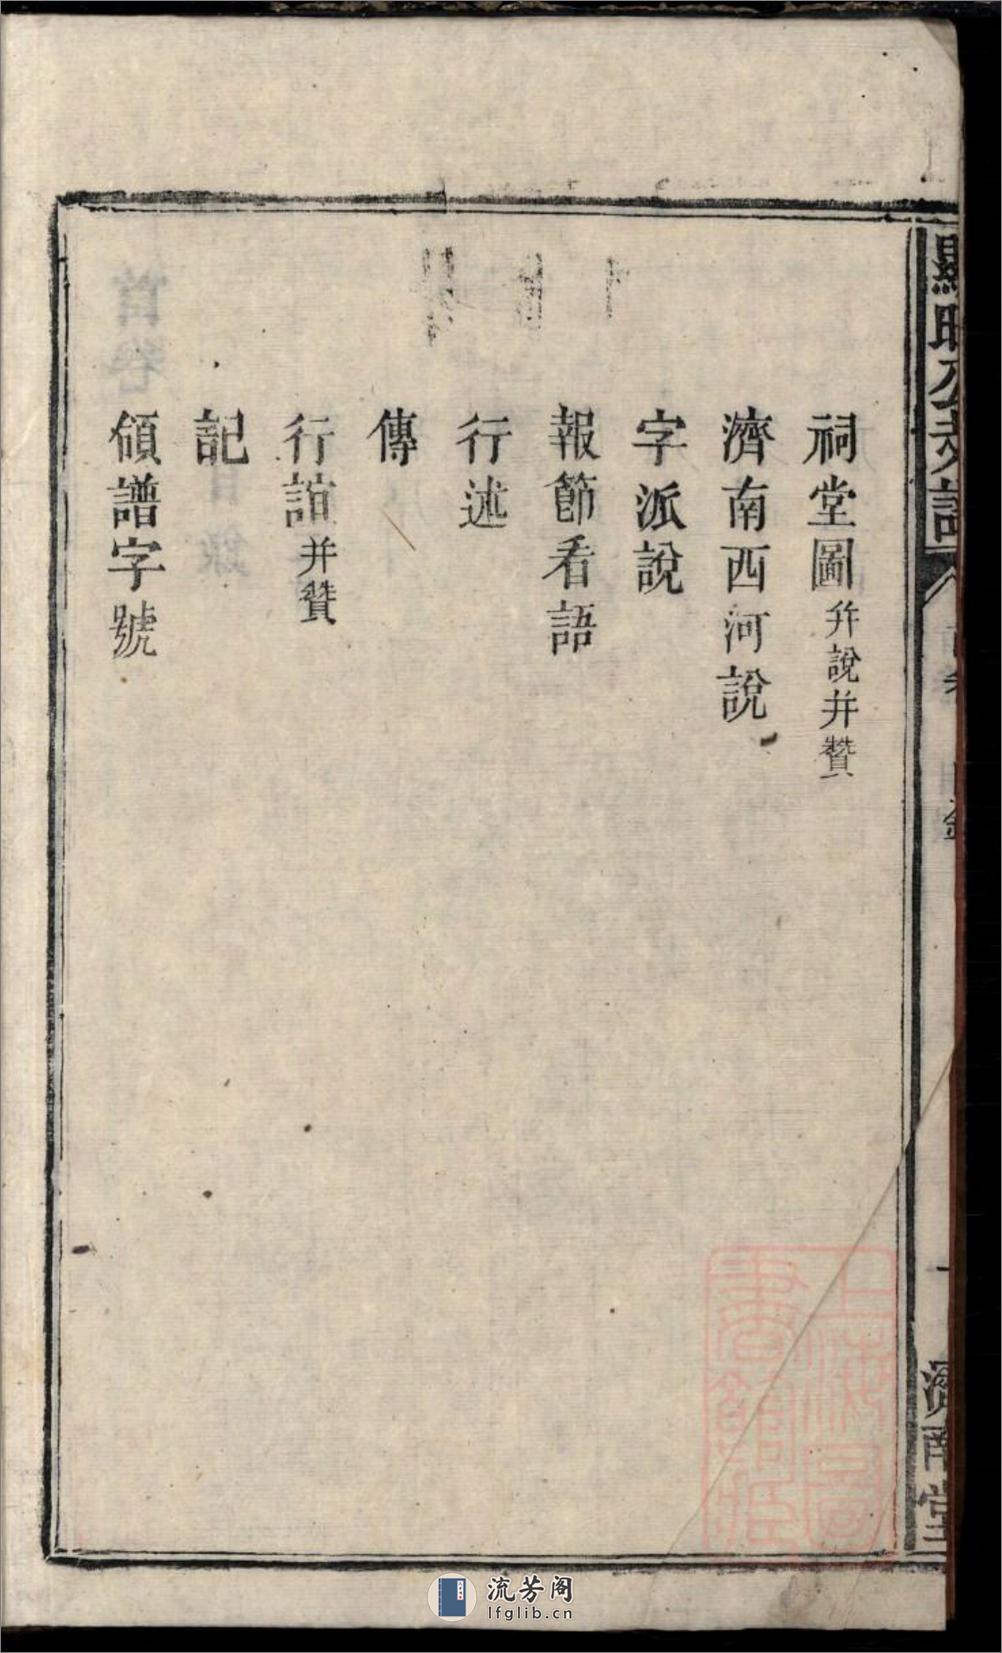 祠堂圖并說并贊
濟南西河說
字派說
報節看語
行述
傳
行誼并贊
記
領譜字號
濟南堂
流芳阁
lfglib.cn